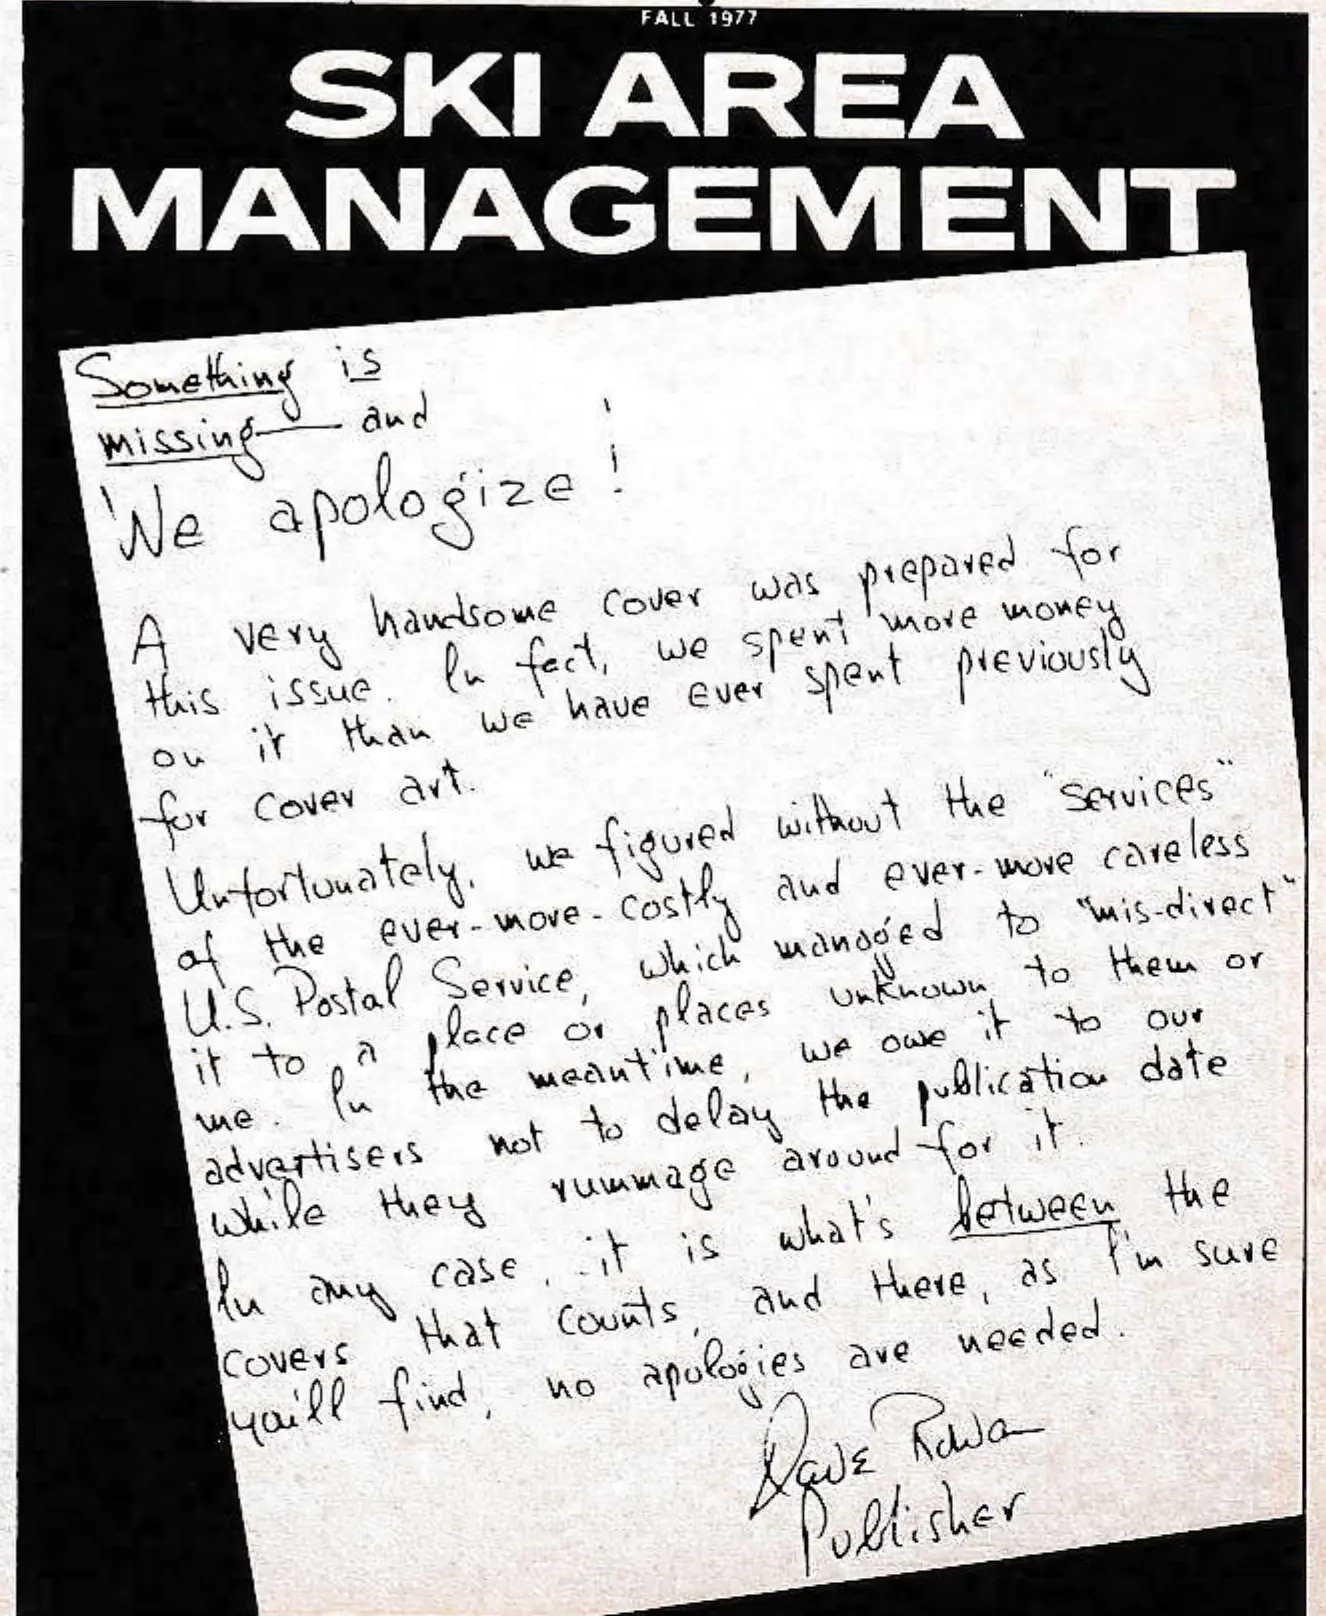 FALL 1977
SKI AREA
MANAGEMENT
Something is
missing — and
We apologize!
A very handsome cover was prepared for
this issue. In fact, we spent more money
on it than we have ever spent previously
for cover art.
Unfortunately, we figured without the "services"
of the ever-more-costly and ever-more careless
U.S. Postal Service, which managed to "mis-direct"
it to a place or places unknown to them or
me. In the meantime, we owe it to our
advertisers not to delay the publication date
while they rummage around for it.
In any case, it is what's between the
covers that counts, and there, as I'm sure
you'll find, no apologies are needed.
Dave Rowan
Publisher